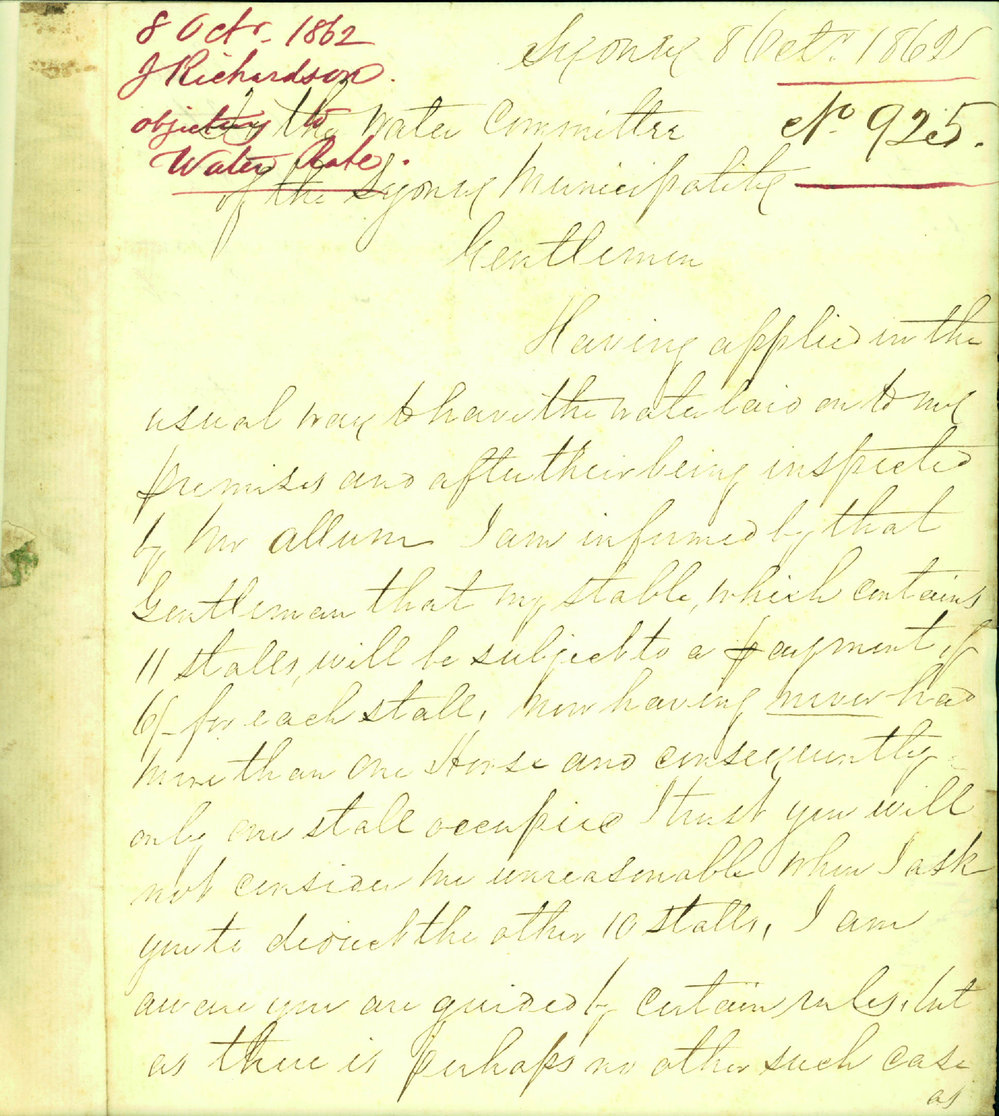 8 Octr. 1862
J Richardson.
objecting to
Water Rate.
Sydney 8 Octr. 1862
No 925.
To the Water Committee
of the Sydney Municipality
Gentlemen
Having applied in the
usual way to have the water laid on to my
premises and after their being inspected
by Mr Allum I am informed by that
Gentleman that my stable, which contains
11 stalls, will be subject to a payment of
6/- for each stall, now having never had
more than one Horse and consequently
only one stall occupied I trust you will
not consider me unreasonable when I ask
you to deduct the other 10 stalls, I am
aware you are guided by certain rules, but
as there is perhaps no other such case
as